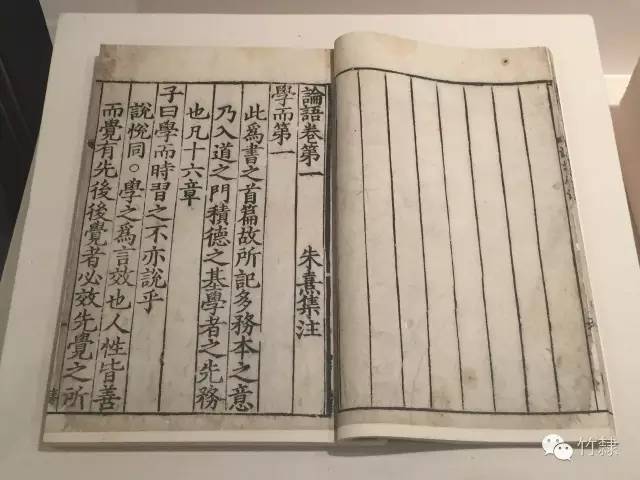 論語卷第一 朱熹集注
學而第一
此爲書之首篇故所記多務本之意
乃入道之門積德之基學者之先務
也凡十六章
子曰學而時習之不亦說乎
說悅同○學之爲言效也人性皆善
而覺有先後後覺者必效先覺之所
竹隸